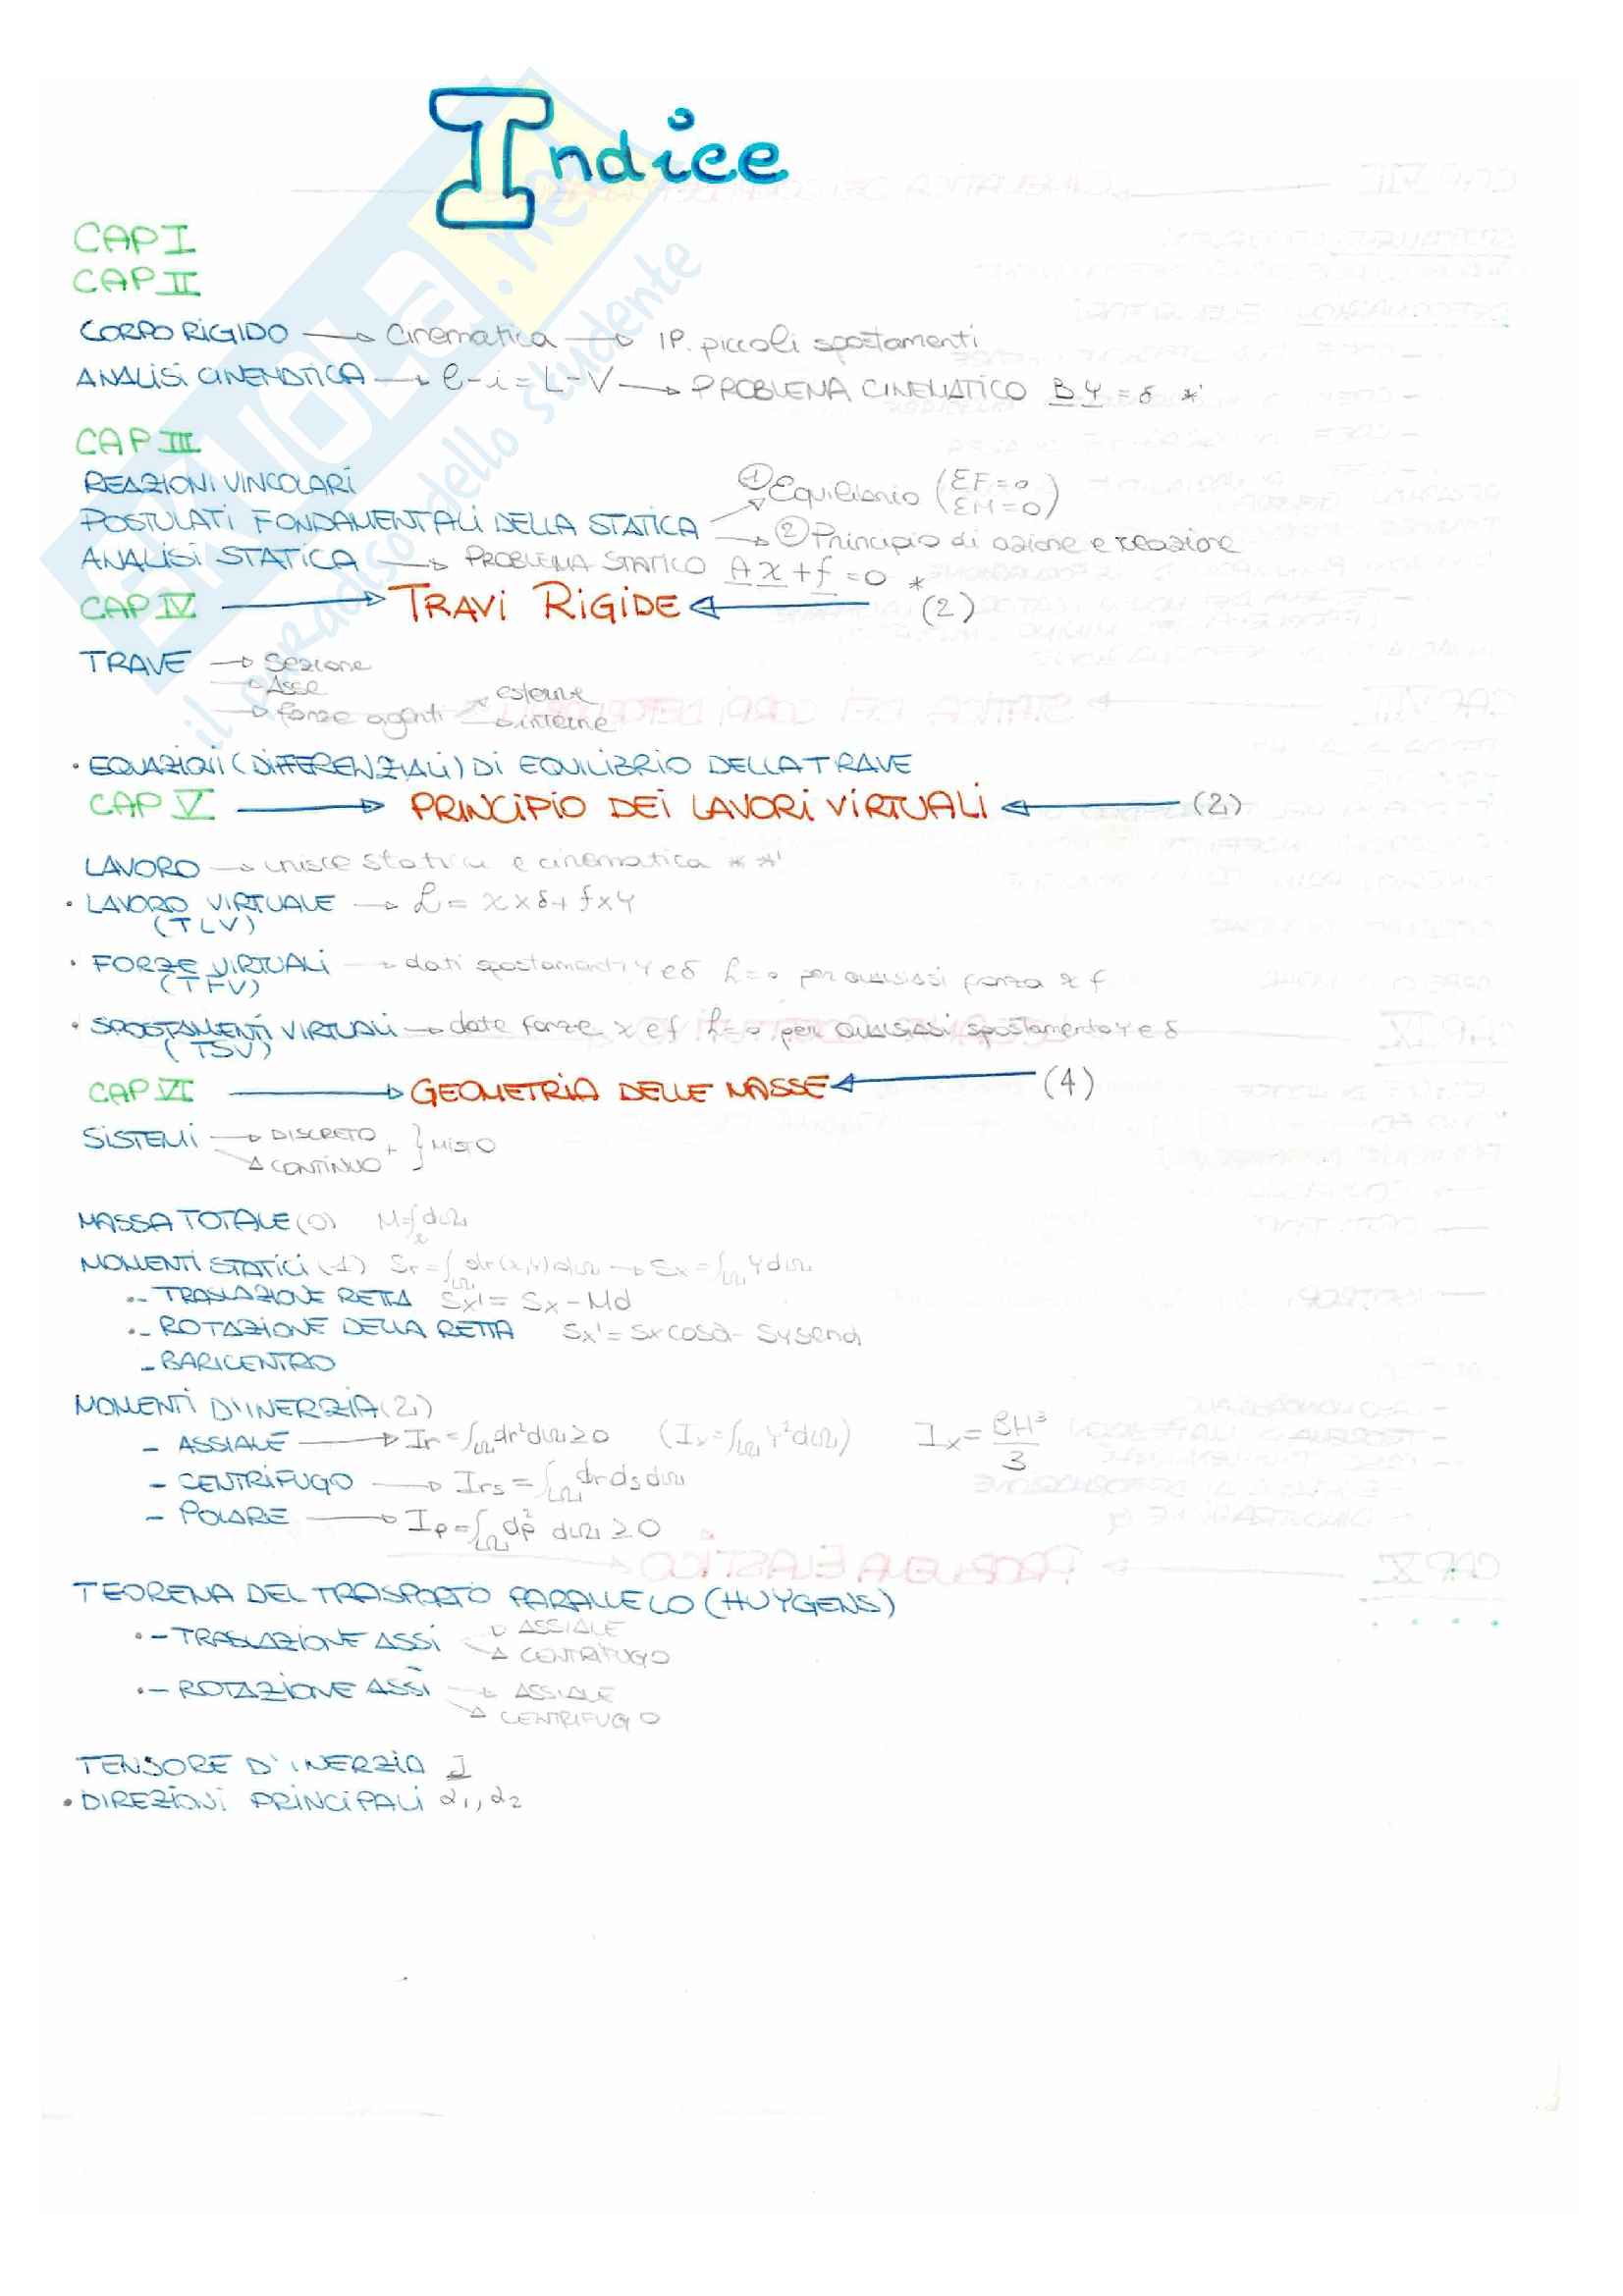 Indice
CAP I
CAP II
CORPO RIGIDO → Cinematica → IP. piccoli spostamenti
ANALISI CINEMATICA → l-i = L-V → PROBLEMA CINEMATICO B Y = δ *'
CAP III
REAZIONI VINCOLARI
① Equilibrio (ΣF=0 ΣM=0)
POSTULATI FONDAMENTALI DELLA STATICA → ② Principio di azione e reazione
ANALISI STATICA → PROBLEMA STATICO A x + f = 0 *
CAP IV → TRAVI RIGIDE ← (2)
TRAVE → Sezione
→ Asse
→ forze agenti → esterne
→ interne
• EQUAZIONI (DIFFERENZIALI) DI EQUILIBRIO DELLA TRAVE
CAP V → PRINCIPIO DEI LAVORI VIRTUALI ← (2)
LAVORO → unisce statica e cinematica * *'
• LAVORO VIRTUALE → L = x × δ + f × Y
(TLV)
• FORZE VIRTUALI → dati spostamenti Y e δ L=0 per qualsiasi forza x f
(TFV)
• SPOSTAMENTI VIRTUALI → date forze x e f L=0 per qualsiasi spostamento Y e δ
(TSV)
CAP VI → GEOMETRIA DELLE MASSE ← (4)
SISTEMI → DISCRETO + } MISTO
→ CONTINUO
MASSA TOTALE (0) M=∫dΩ
MOMENTI STATICI (1) Sr = ∫Ω dr(x,y)dΩ → Sx = ∫Ω Y dΩ
•- TRASLAZIONE RETTA Sx' = Sx - Md
•- ROTAZIONE DELLA RETTA Sx' = Sx cosα - Sy senα
- BARICENTRO
MOMENTI D'INERZIA (2)
- ASSIALE → Ir = ∫Ω dr² dΩ ≥ 0 (Ix = ∫Ω Y² dΩ) Ix = BH³/3
- CENTRIFUGO → Irs = ∫Ω dr ds dΩ
- POLARE → Ip = ∫Ω dp² dΩ ≥ 0
TEOREMA DEL TRASPORTO PARALLELO (HUYGENS)
•- TRASLAZIONE ASSI → ASSIALE
→ CENTRIFUGO
•- ROTAZIONE ASSI → ASSIALE
→ CENTRIFUGO
TENSORE D'INERZIA J
• DIREZIONI PRINCIPALI α1, α2
SKUOLA.net
il paradiso dello studente